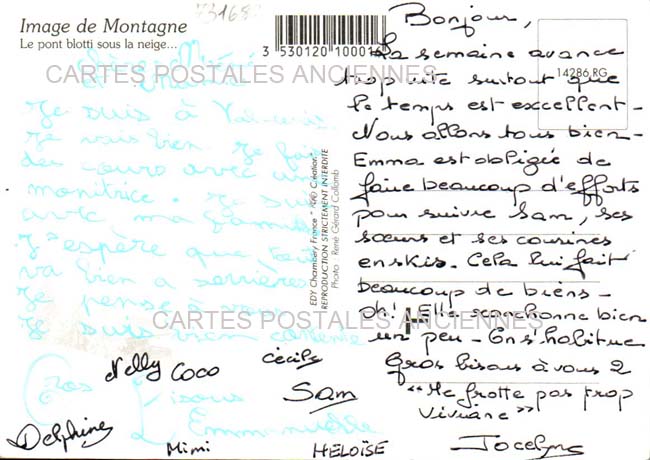 Image de Montagne
Le pont blotti sous la neige...
3 530120 10001
14286.RG
CARTES POSTALES ANCIENNES
Je suis à
Je vais bien. Je fais
des cours avec un
monitrice. Je suis
avec ma
J'espère que tout
va bien a
Je pense à
Je suis bien contente
Gros Bisous
Emmanuelle
EDY Chambéry France
REPRODUCTION STRICTEMENT INTERDITE
Photo : René Gérard Collomb
Bonjour,
La semaine avance
trop vite surtout que
le temps est excellent -
Nous allons tous bien -
Emma est obligée de
faire beaucoup d'efforts
pour suivre Sam, ses
sœurs et ses cousines
en skis. Cela lui fait
beaucoup de biens -
oh! Elle ronchonne bien
un peu - On s'habitue
Gros bisous à vous 2
"Ne frotte pas trop
Viviane"
CARTES POSTALES ANCIENNES
Nelly Coco Cécile
Sam
Delphine Mimi HELOÏSE Jocelyne